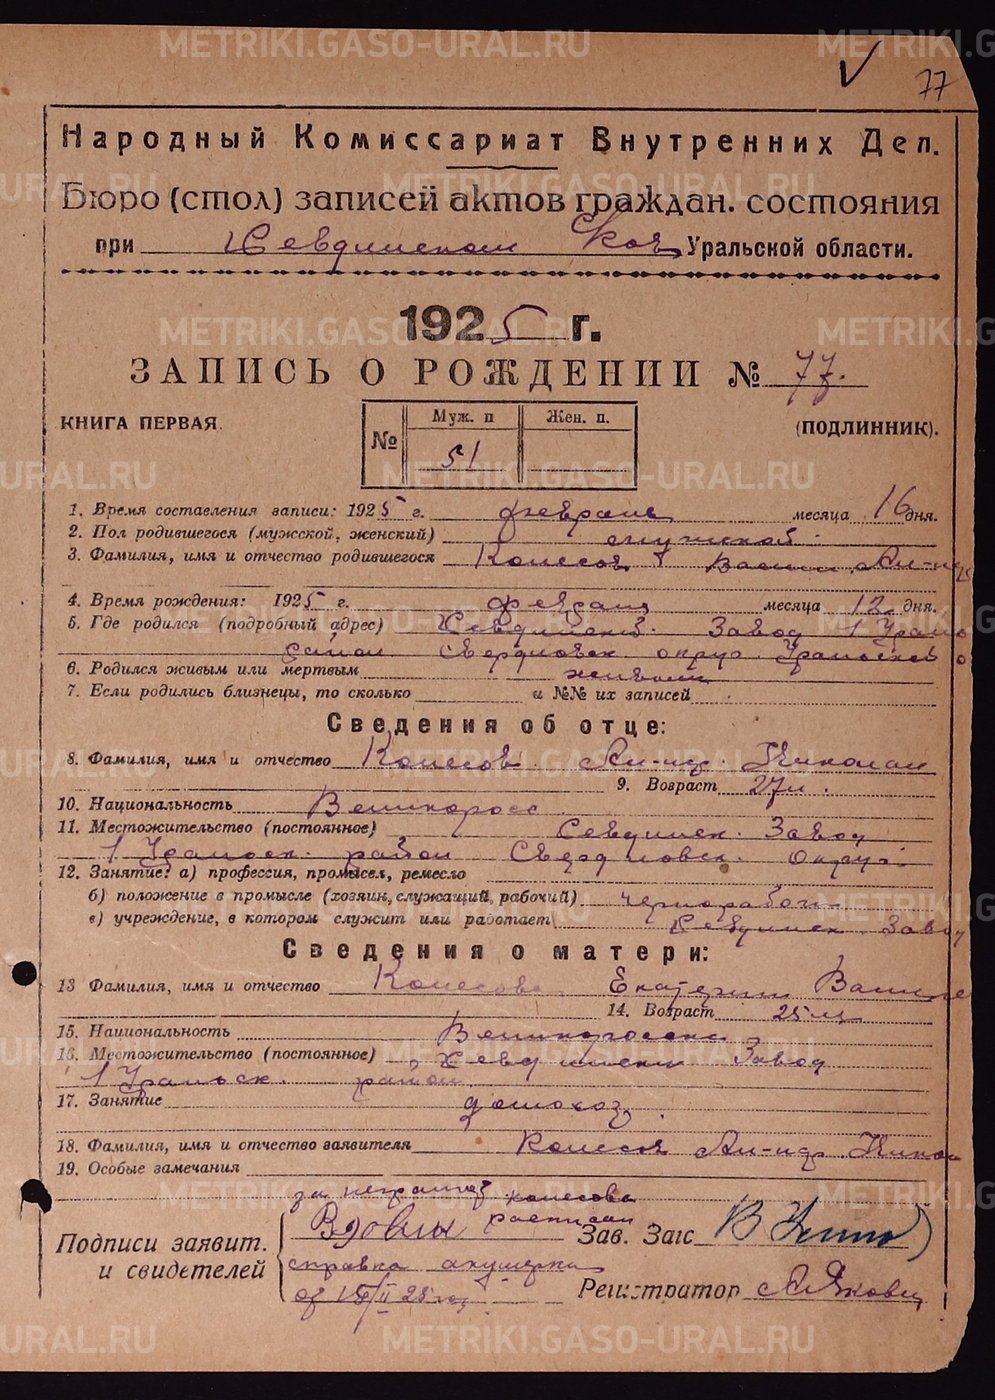 77
Народный Комиссариат Внутренних Дел.
Бюро (стол) записей актов граждан. состояния
при Уральской области.
1925 г.
ЗАПИСЬ О РОЖДЕНИИ № 77.
КНИГА ПЕРВАЯ.
(ПОДЛИННИК).
№ Муж. п Жен. п.
51
1. Время составления записи: 1925 г. февраля месяца 16 дня.
2. Пол родившегося (мужской, женский) мужской
3. Фамилия, имя и отчество родившегося Колесов
4. Время рождения: 1925 г. февраля месяца 12 дня.
5. Где родился (подробный адрес) Завод 1 Урало
район Свердловск округ Уральской о
6. Родился живым или мертвым живым
7. Если родились близнецы, то сколько и №№ их записей
Сведения об отце:
8. Фамилия, имя и отчество Колесов Ал-нд. Николаи
9. Возраст 27 л.
10. Национальность Великоросс
11. Местожительство (постоянное) Завод
1 Уральск. район Свердловск. округ.
12. Занятие: а) профессия, промысел, ремесло
б) положение в промысле (хозяин, служащий, рабочий) чернорабоч
в) учреждение, в котором служит или работает Завод
Сведения о матери:
13 Фамилия, имя и отчество Колесова Екатерин Василье
14. Возраст 25 л
15. Национальность Великоросска
16. Местожительство (постоянное) Завод
1 Уральск. район
17. Занятие домохоз.
18. Фамилия, имя и отчество заявителя Колесов Ал-нд. Никол
19. Особые замечания
за неграмот Колесова
расписал
Подписи заявит. Зав. Загс
и свидетелей справка акушерки
от Регистратор
METRIKI.GASO-URAL.RU